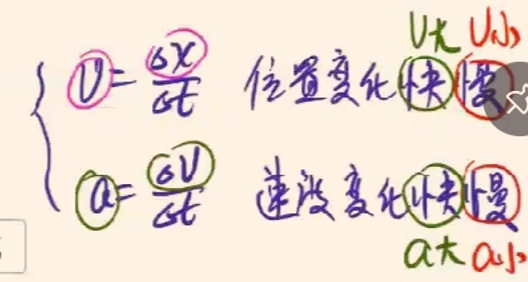 V大 V小
V=Δx/Δt 位置变化快慢
a=ΔV/Δt 速度变化快慢
a大 a小